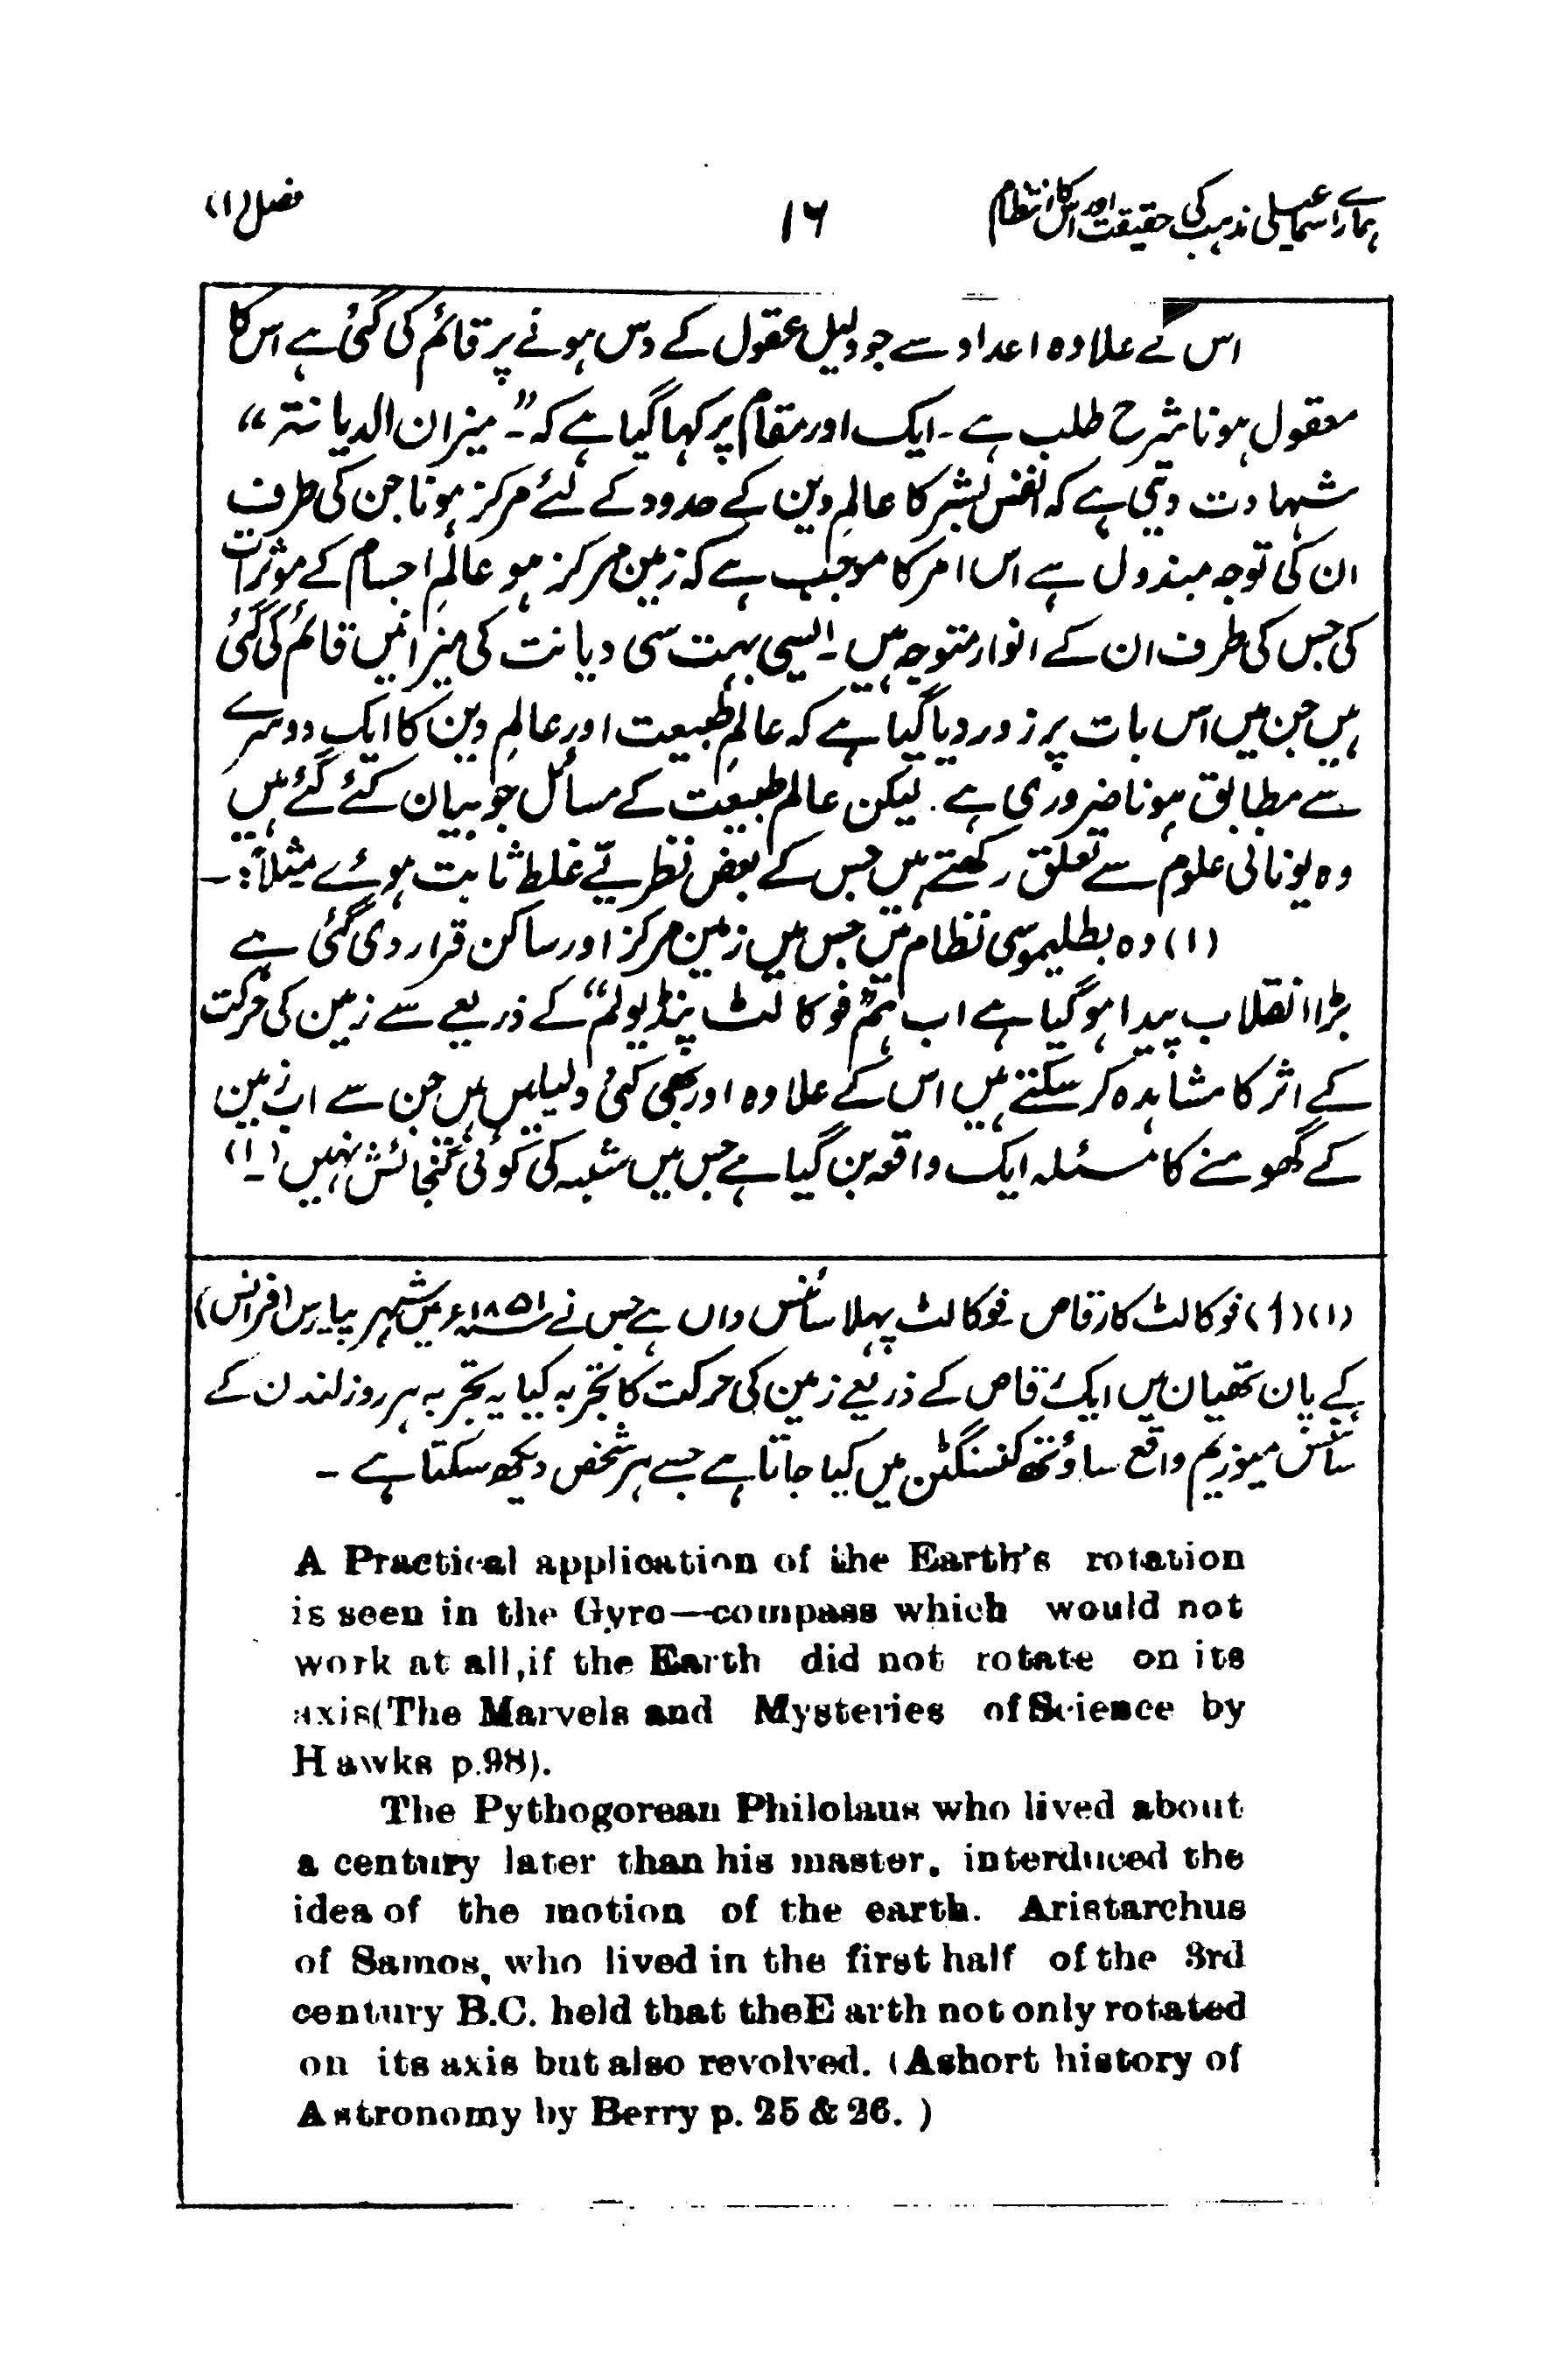 ہمارے اسماعیلی مذہب کی حقیقت اور اس کا انتظام ۱۶ فصل (۱)
اس کے علاوہ اعداد سے جو دلیل عقول کے دس ہونے پر قائم کی گئی ہے اس کا
معقول ہونا شرح طلب ہے ۔ ایک اور مقام پر کہا گیا ہے کہ ”۔ میزان الدیانتہ“
شہادت دیتی ہے کہ انفس بشر کا عالمِ دین کے حدود کے لئے مرکز ہونا جن کی طرف
ان کی توجہ مبذول ہے اس امر کا موجب ہے کہ زمین مرکز ہو عالمِ اجسام کے موثرات
کی جس کی طرف ان کے انوار متوجہ ہیں ۔ ایسی بہت سی دیانت کی میزانیں قائم کی گئی
ہیں جن میں اس بات پر زور دیا گیا ہے کہ عالمِ طبیعت اور عالمِ دین کا ایک دوسرے
سے مطابق ہونا ضروری ہے . لیکن عالمِ طبیعت کے مسائل جو بیان کئے گئے ہیں
وہ یونانی علوم سے تعلق رکھتے ہیں جس کے بعض نظریّے غلط ثابت ہوئے مثلاً :۔
(۱) وہ بطلیموسی نظام میں جس میں زمین مرکز اور ساکن قرار دی گئی ہے
بڑا انقلاب پیدا ہو گیا ہے اب ہم ”فوکالٹ پنڈیولم“ کے ذریعے سے زمین کی حرکت
کے اثر کا مشاہدہ کر سکتے ہیں اس کے علاوہ اور بھی کئی دلیلیں ہیں جن سے اب زمین
کے گھومنے کا مسئلہ ایک واقعہ بن گیا ہے جس میں شبہ کی کوئی گنجائش نہیں (۱)
(۱) (أ) فوکالٹ کا رقاص ۔ فوکالٹ پہلا سائنس داں ہے جس نے ۱۸۵۱ء میں شہر پیارس (فرانس)
کے پان تھیان میں ایک رقاص کے ذریعے زمین کی حرکت کا تجربہ کیا یہ تجربہ ہر روز لندن کے
سائنس میوزیم واقع ساؤتھ کنسنگٹن میں کیا جاتا ہے جسے ہر شخص دیکھ سکتا ہے ۔
A Practical application of the Earth's rotation
is seen in the Gyro—compass which would not
work at all,if the Earth did not rotate on its
axis(The Marvels and Mysteries of Science by
Hawks p.98).
The Pythogorean Philolaus who lived about
a century later than his master, interduced the
idea of the motion of the earth. Aristarchus
of Samos, who lived in the first half of the 3rd
century B.C. held that theE arth not only rotated
on its axis but also revolved. (Ashort history of
Astronomy by Berry p. 25 & 26. )